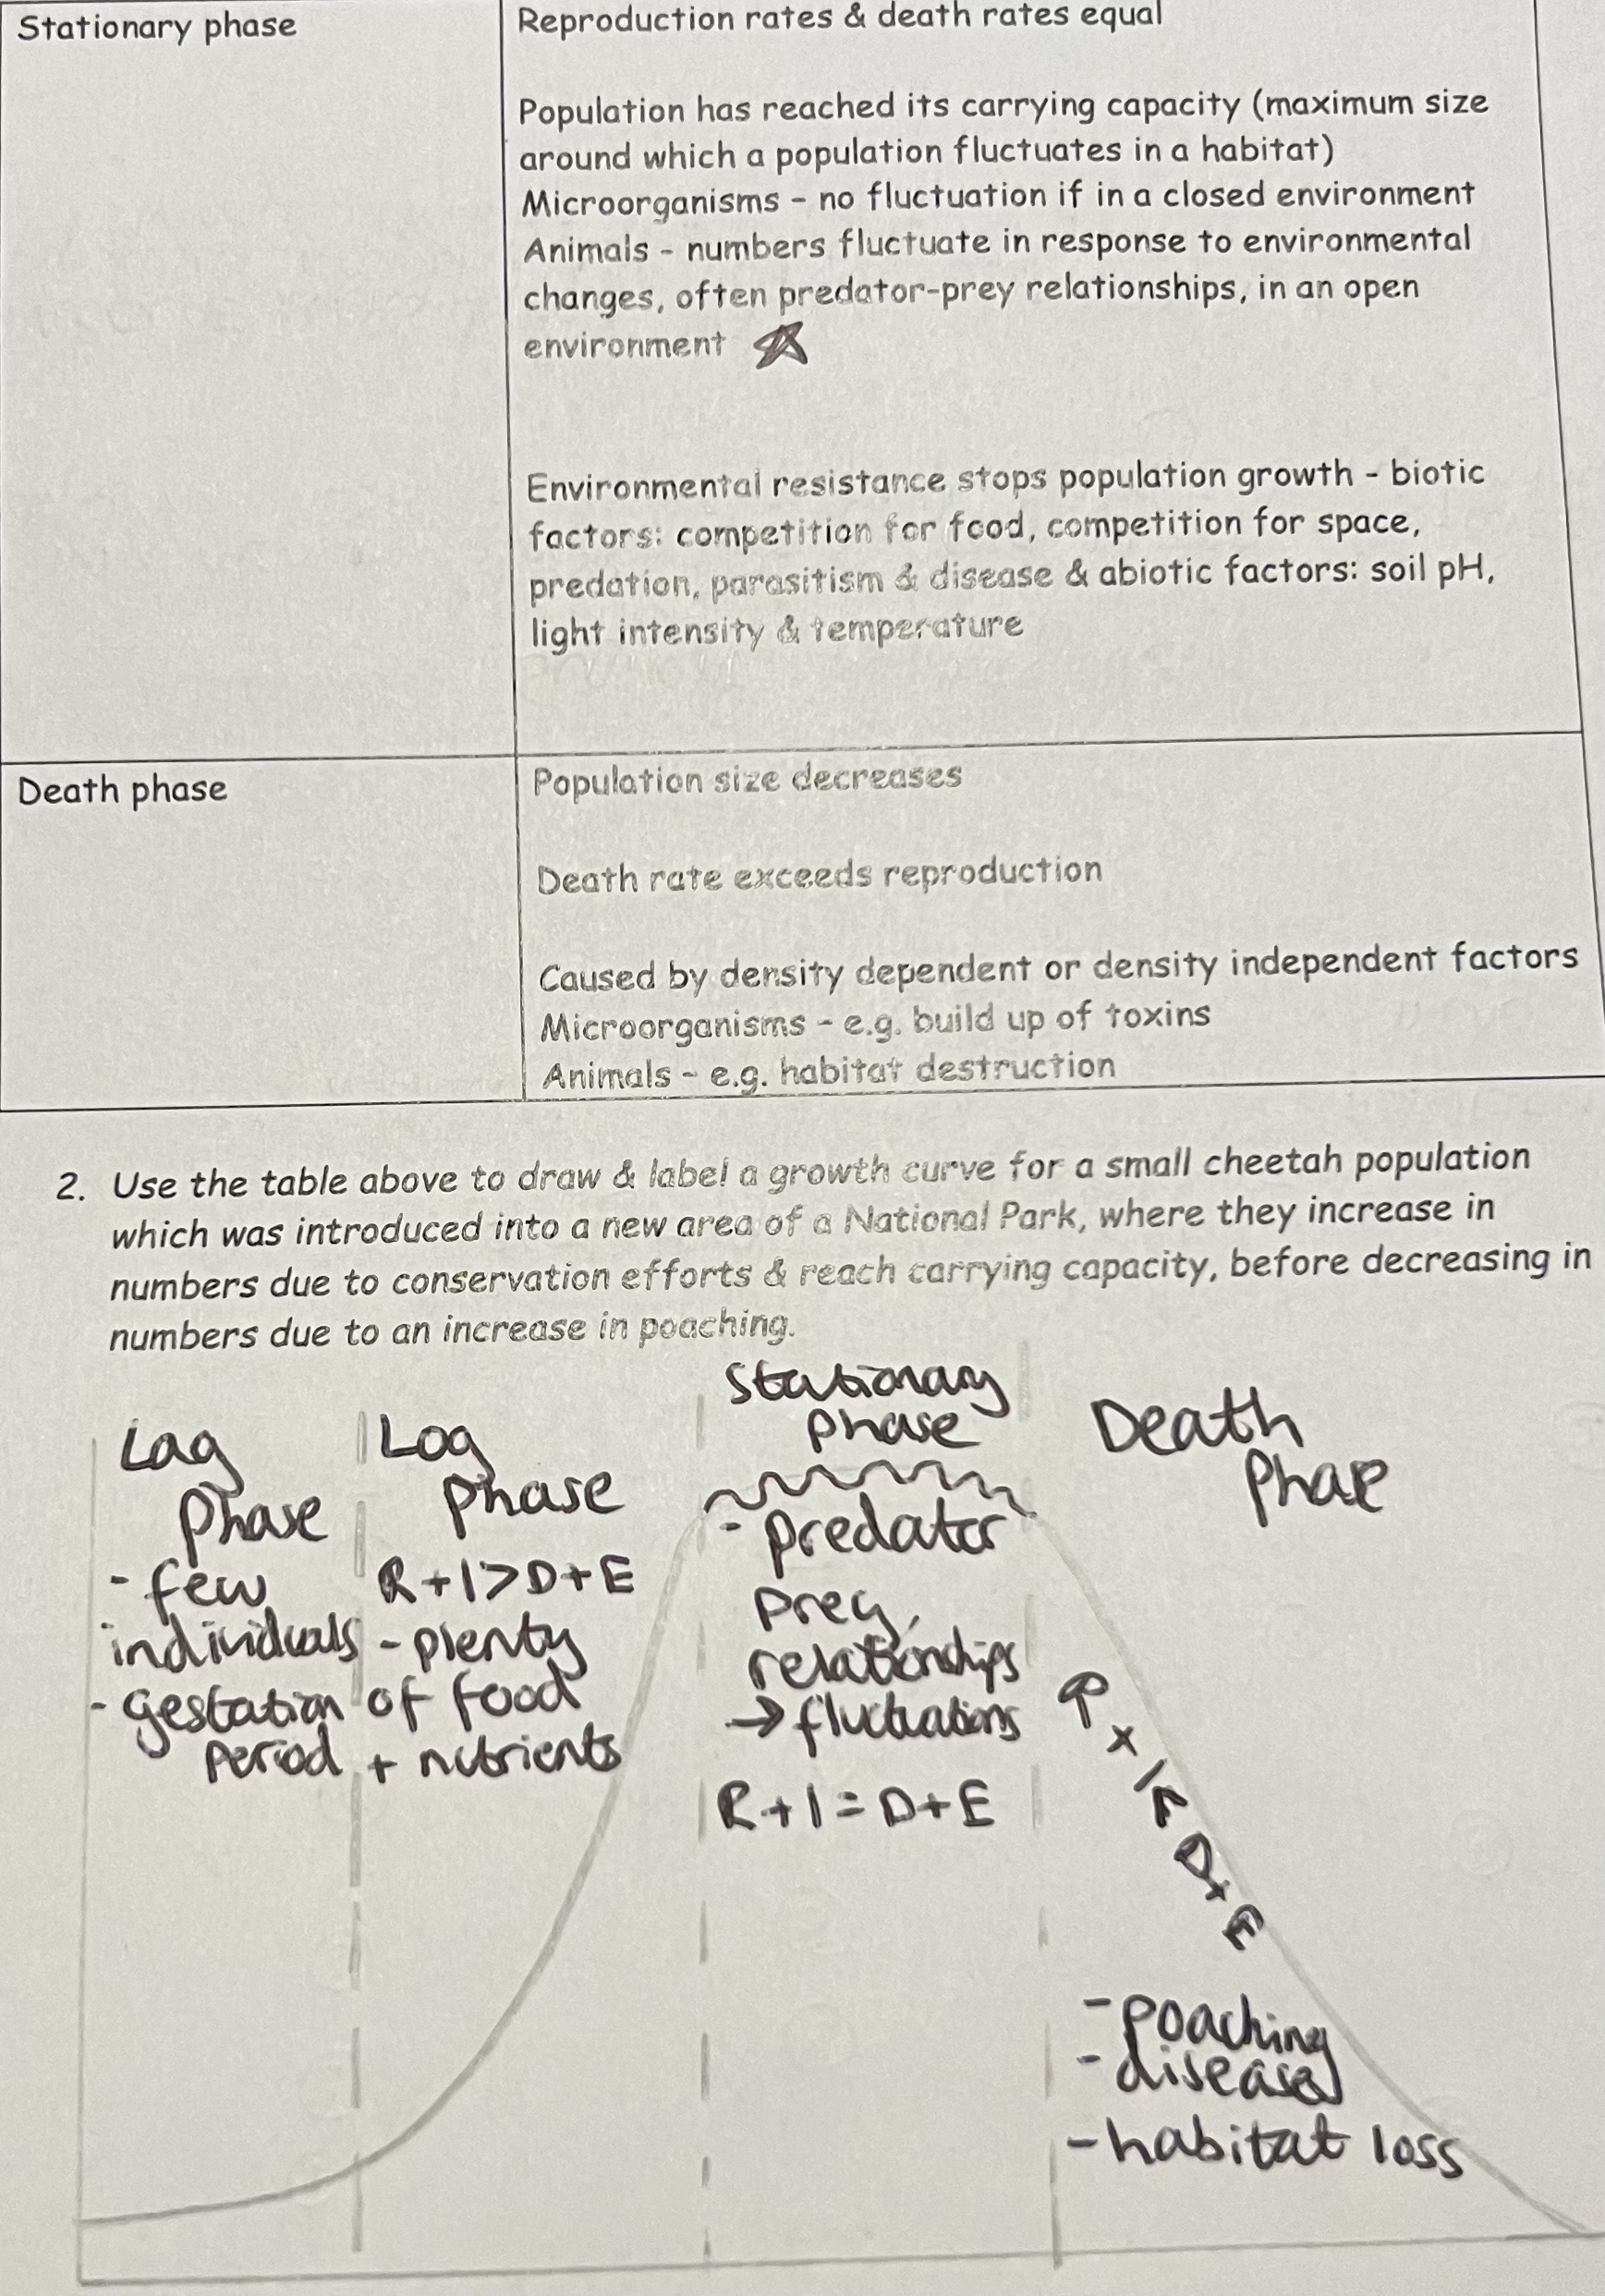 Stationary phase
Reproduction rates & death rates equal
Population has reached its carrying capacity (maximum size
around which a population fluctuates in a habitat)
Microorganisms - no fluctuation if in a closed environment
Animals - numbers fluctuate in response to environmental
changes, often predator-prey relationships, in an open
environment
Environmental resistance stops population growth - biotic
factors: competition for food, competition for space,
predation, parasitism & disease & abiotic factors: soil pH,
light intensity & temperature
Death phase
Population size decreases
Death rate exceeds reproduction
Caused by density dependent or density independent factors
Microorganisms - e.g. build up of toxins
Animals - e.g. habitat destruction
2. Use the table above to draw & label a growth curve for a small cheetah population
which was introduced into a new area of a National Park, where they increase in
numbers due to conservation efforts & reach carrying capacity, before decreasing in
numbers due to an increase in poaching.
Lag
Phase
- few
individuals
- gestation
period
Log
Phase
R+I>D+E
- plenty
of food
+ nutrients
Stationary
Phase
- predator
prey
relationships
→ fluctuations
R+I=D+E
Death
Phase
D+E
- poaching
- disease
- habitat loss